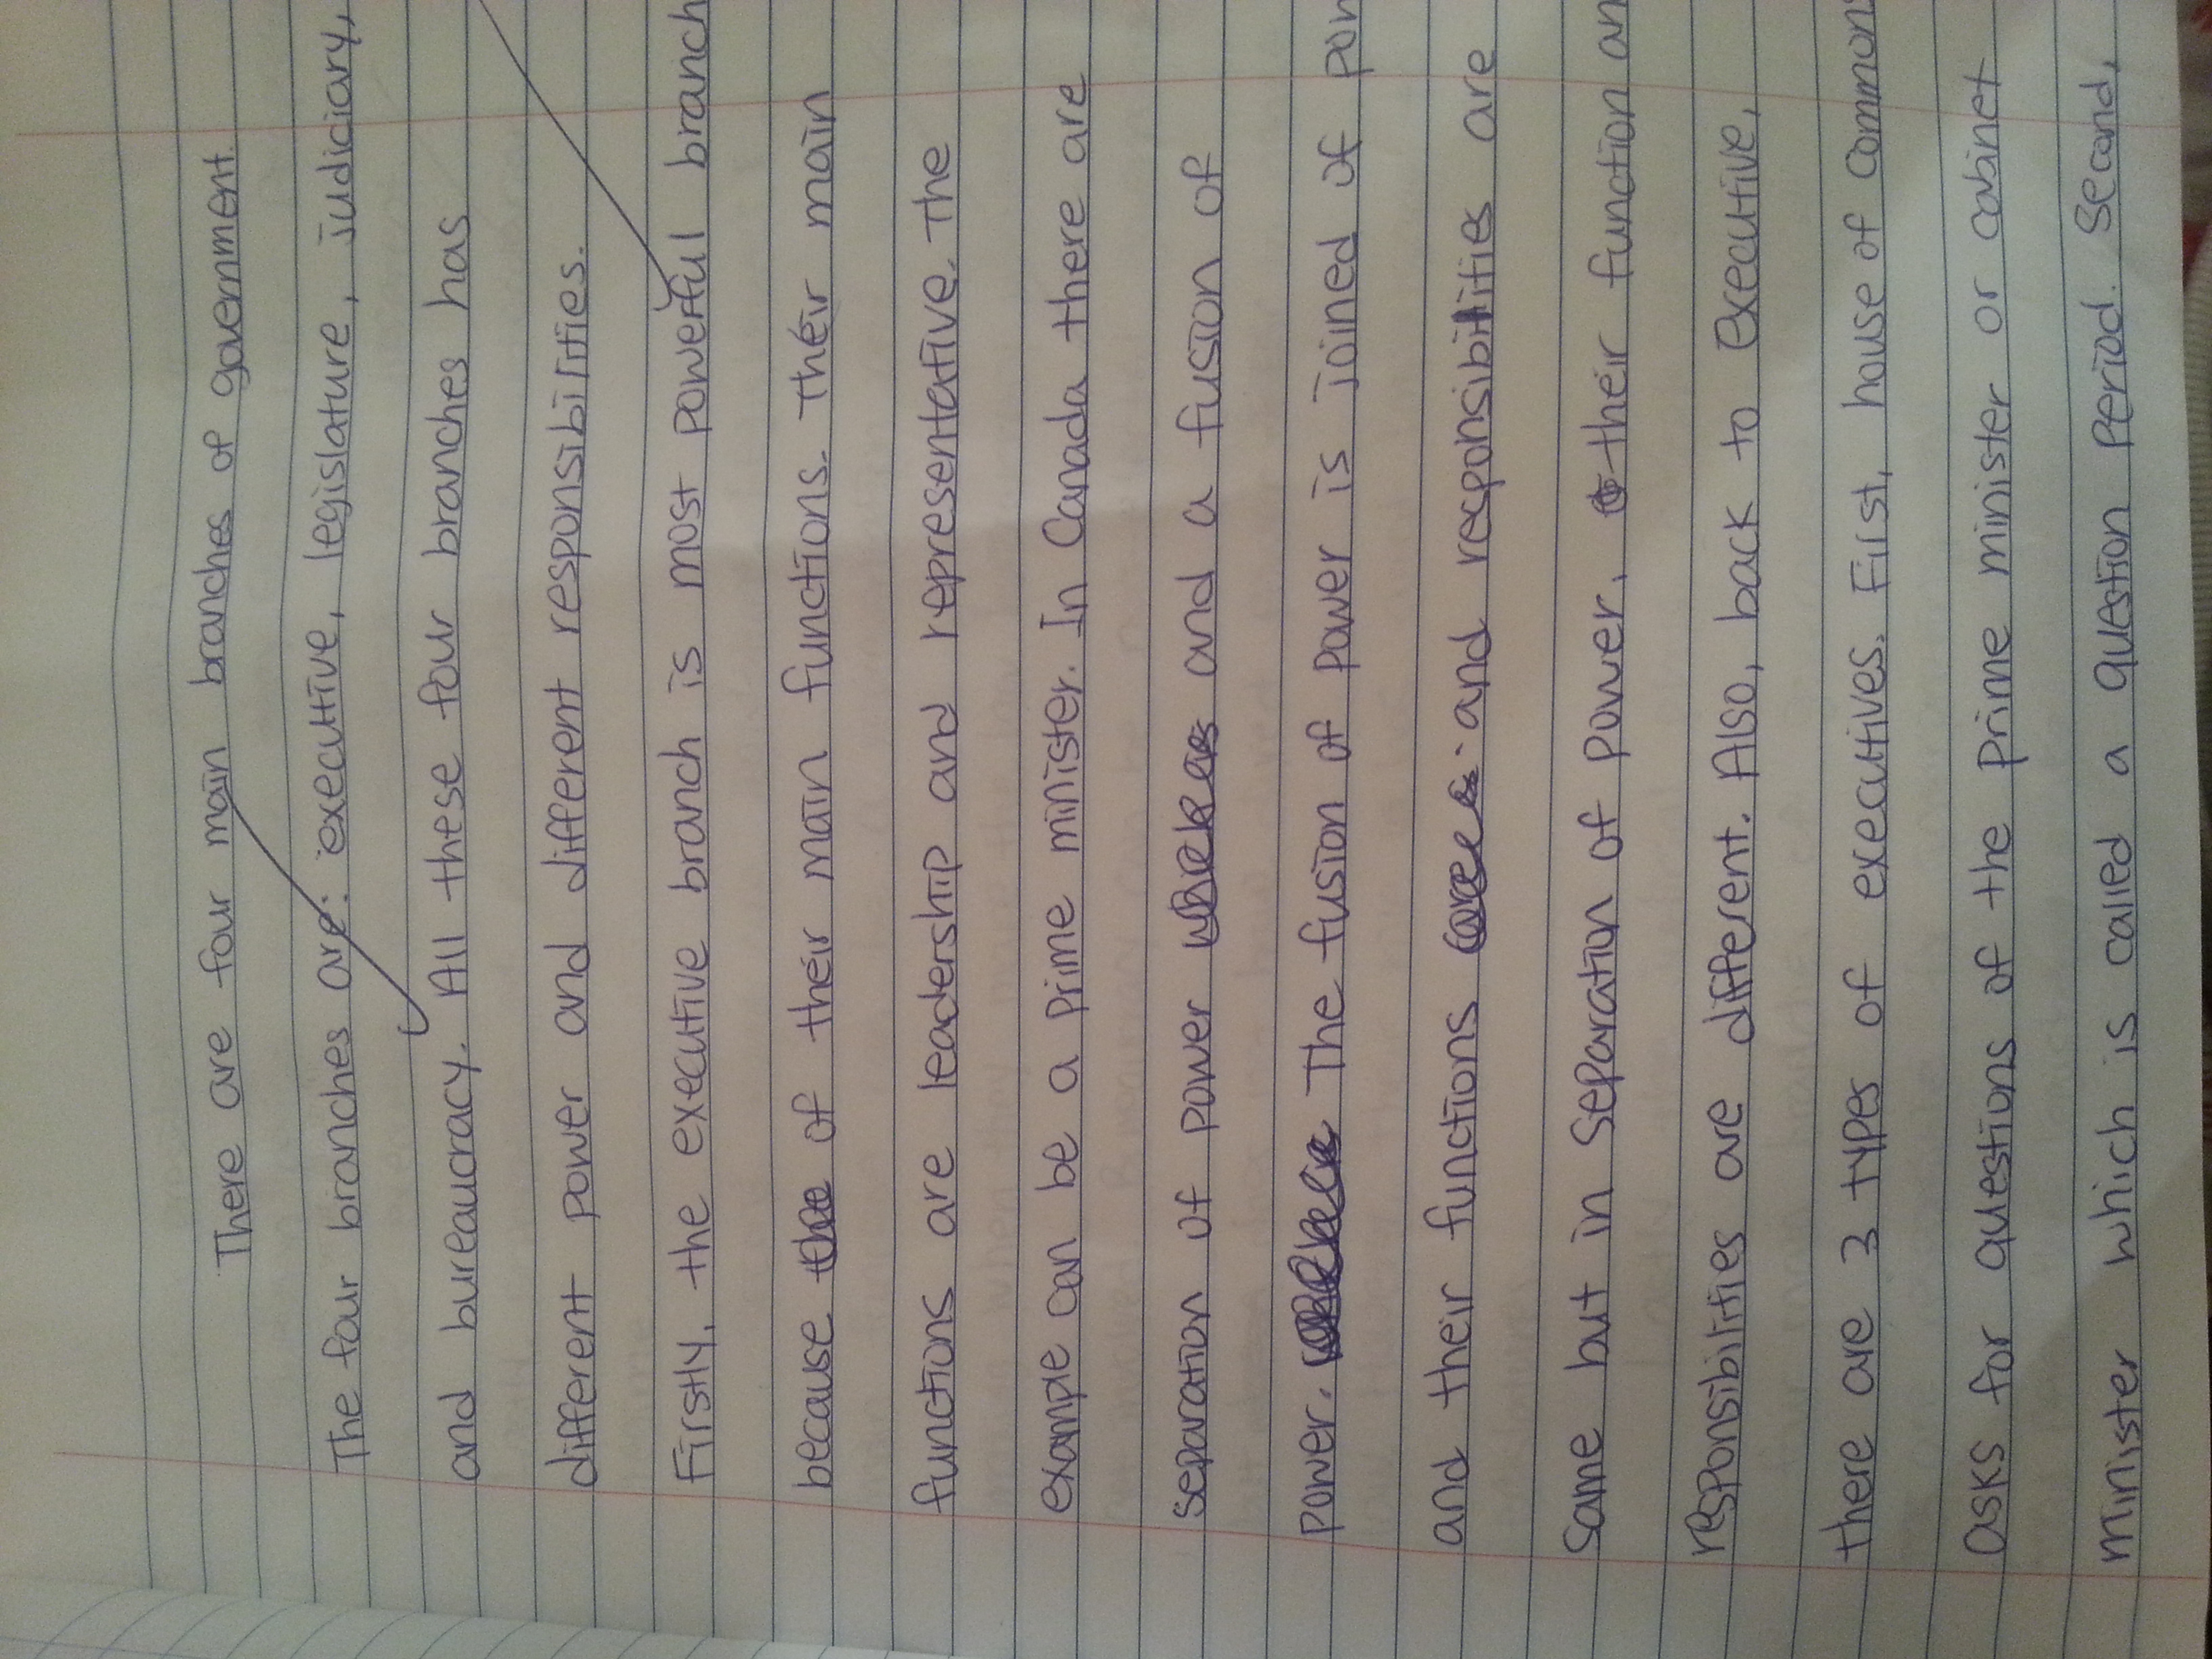 There are four main branches of government.
The four branches are: executive, legislature, judiciary,
and bureaucracy. All these four branches has
different power and different responsibilities.
Firstly, the executive branch is most powerful branch
because of their main functions. Their main
functions are leadership and representative. The
example can be a prime minister. In Canada there are
separation of power and a fusion of
power. The fusion of power is joined of
and their functions and responsibilities are
same but in separation of power, their function
responsibilities are different. Also, back to executive,
there are 3 types of executives. First, house of common
asks for questions of the prime minister or cabinet
minister which is called a question period. Second,